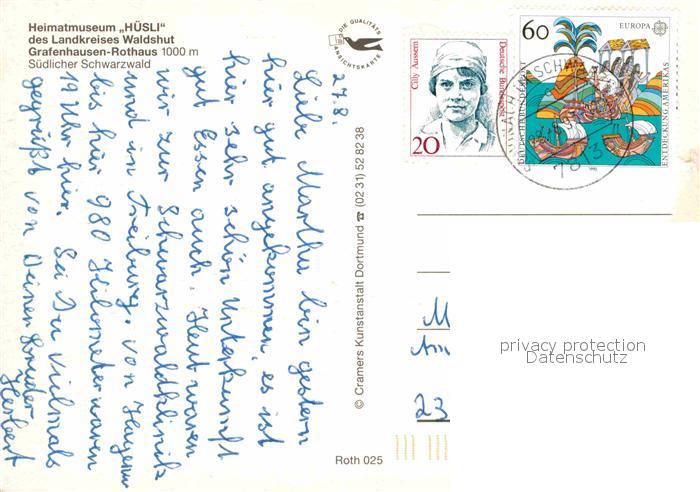 Heimatmuseum „HÜSLI“
des Landkreises Waldshut
Grafenhausen-Rothaus 1000 m
Südlicher Schwarzwald
DIE QUALITÄTS
ANSICHTSKARTE
27.8.
Liebe Martha bin gestern
hier gut angekommen, es ist
hier sehr schön Unterkunft
gut Essen auch. Heut waren
wir zur Schwarzwaldklinik
und in Freiburg. von Hagenow
bis hier 980 Kilometer waren
19 Uhr hier. Sei Du vielmals
gegrüßt von Deinen Bruder
Herbert
© Cramers Kunstanstalt Dortmund ☎ (02 31) 52 82 38
Roth 025
Cilly Aussem
Deutsche Bundespost
20
60
EUROPA
DEUTSCHE BUNDESPOST
ENTDECKUNG AMERIKAS
M
Am
23
privacy protection
Datenschutz